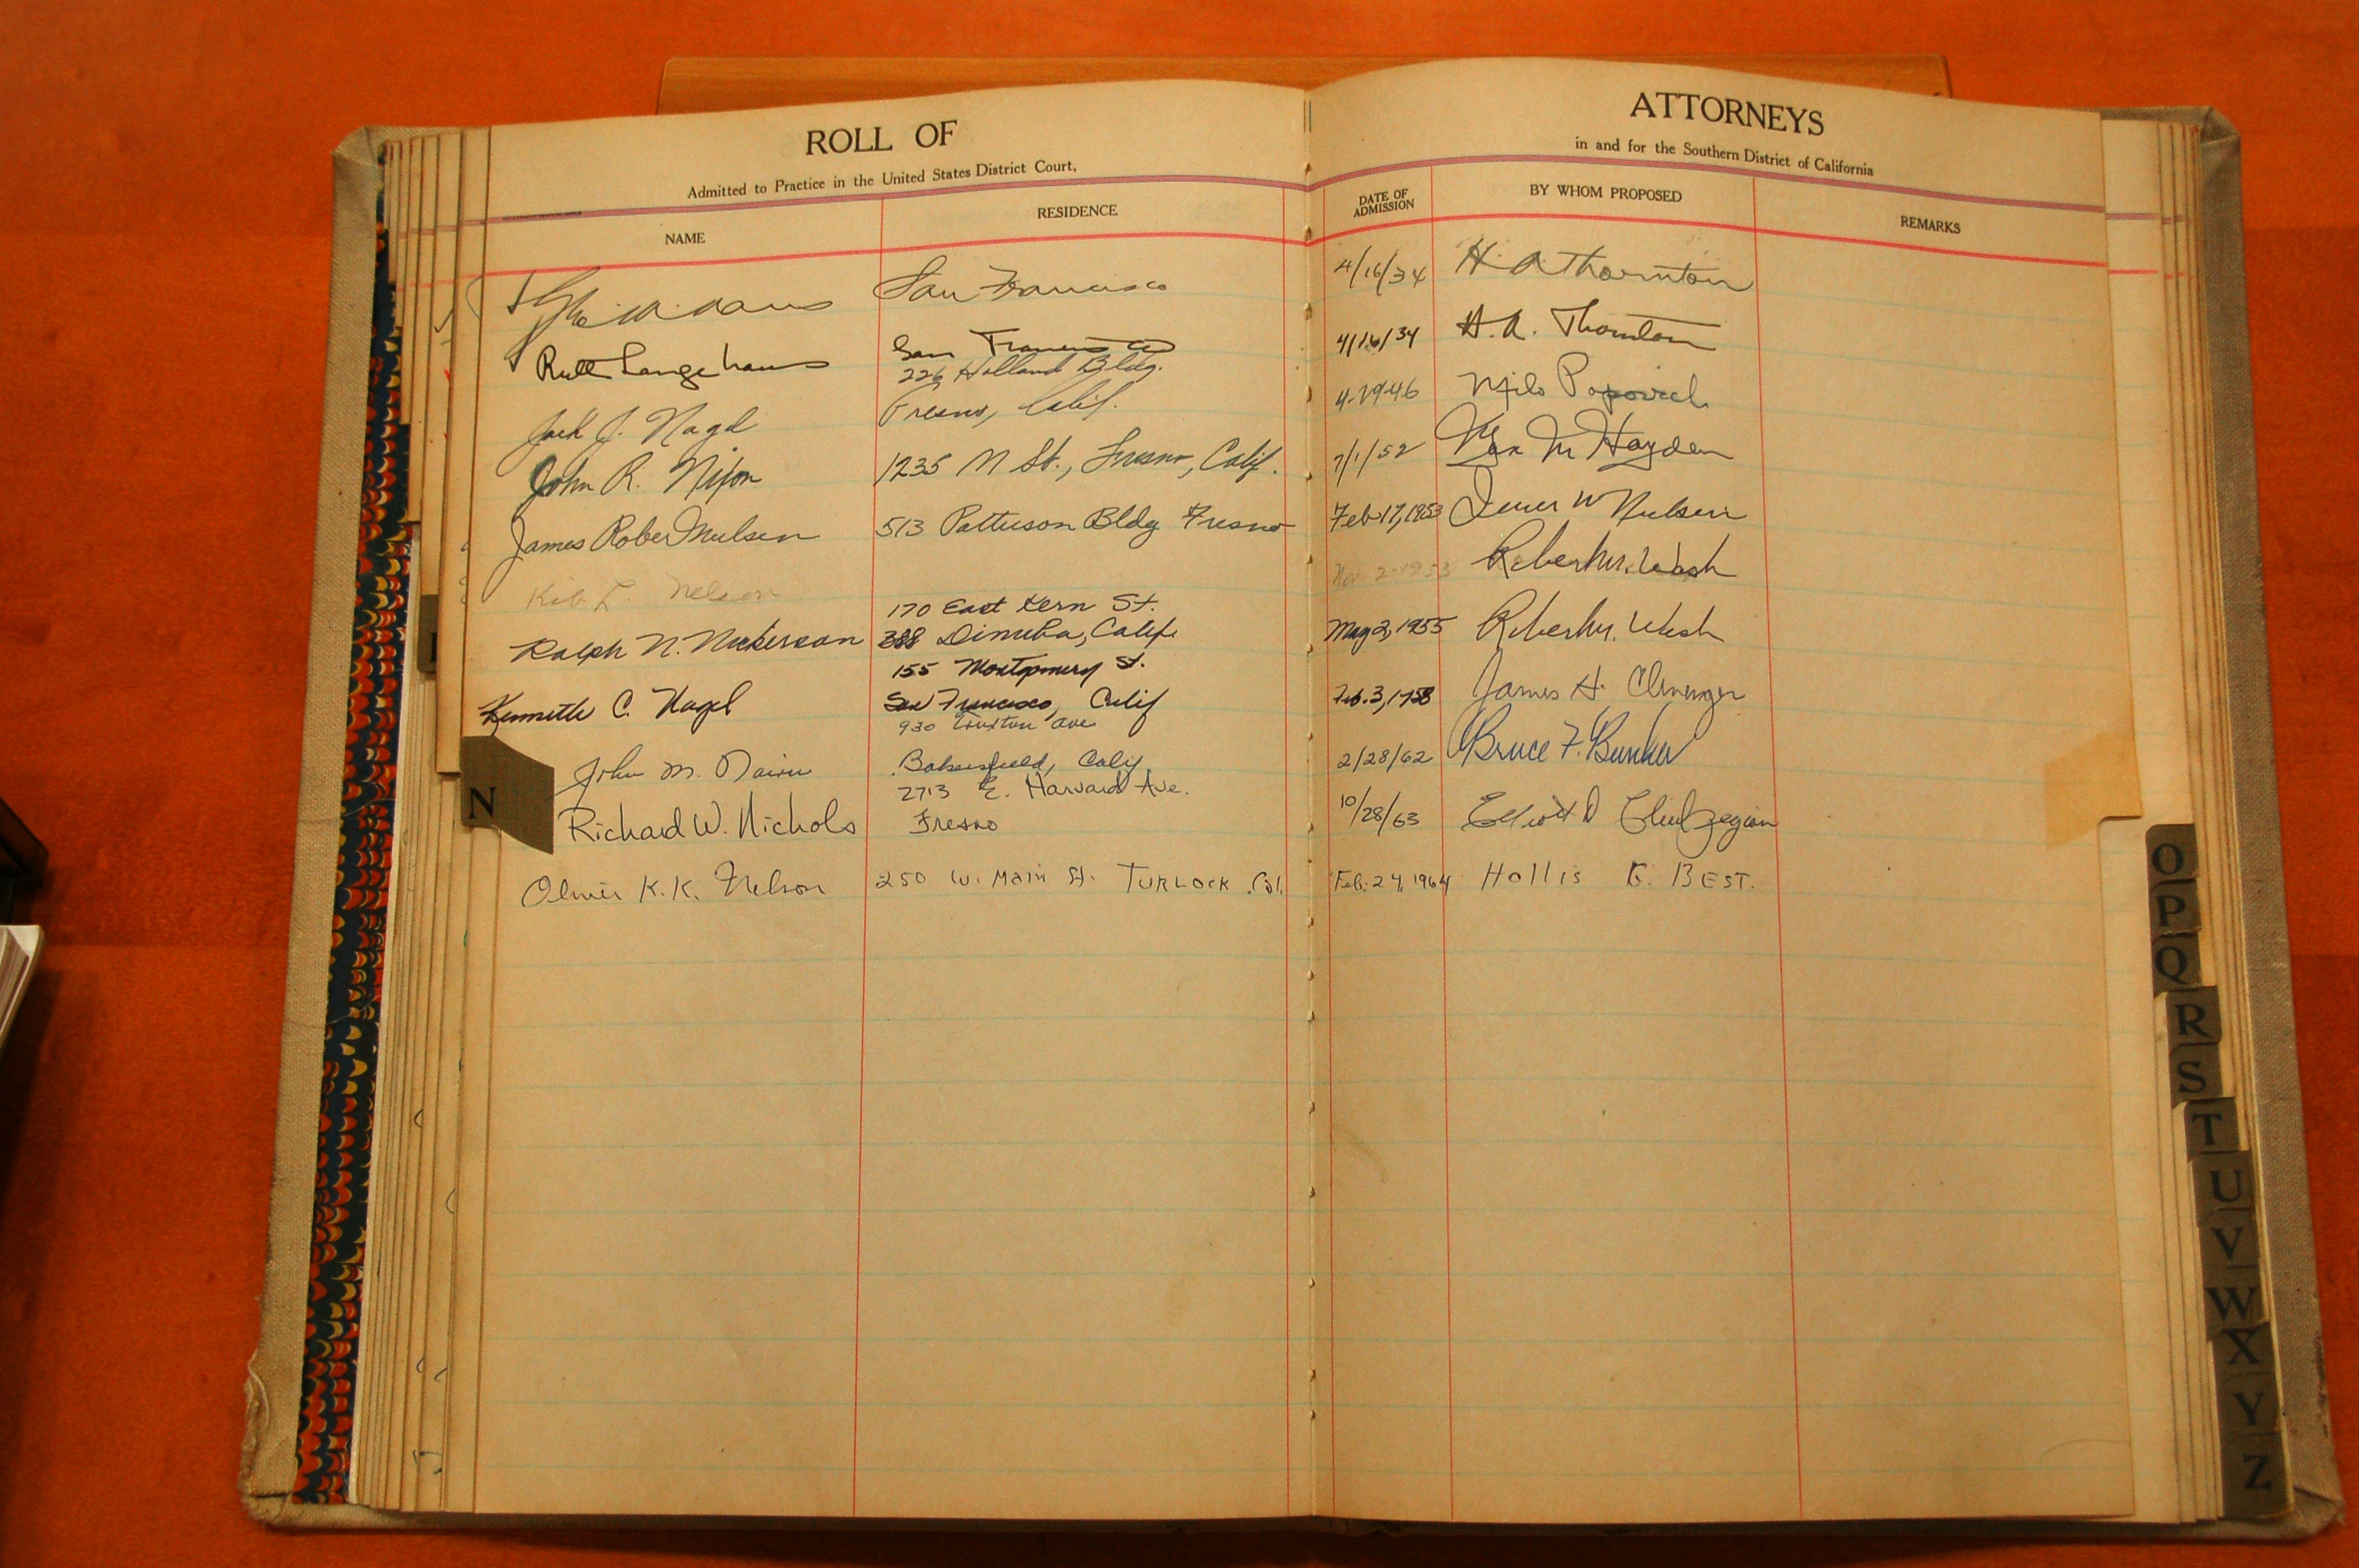 ROLL OF
ATTORNEYS
Admitted to Practice in the United States District Court,
in and for the Southern District of California
NAME
RESIDENCE
DATE OF ADMISSION
BY WHOM PROPOSED
REMARKS
San Francisco 4/16/34 H. A Thornton
Ruth Langehaus San Francisco 4/16/34 H. A. Thornton
226 Holland Bldg.
Jack J. Nagel Fresno, Calif. 4-29-46 Milo Popovich
John R. Nixon 1235 N St., Fresno, Calif. 7/1/52 Max M Hayden
James Robert Nielsen 513 Patterson Bldg Fresno Feb 17, 1953 W Nielsen
Nelson Nov 2-1953 Robert M. Wash
170 East Kern St.
Ralph N. Nickerson Dinuba, Calif. May 2, 1955 Robert M. Wash
155 Montgomery St.
Kenneth C. Nagel San Francisco, Calif Feb. 3, 1958 James H. Clevenger
930 Truxtun Ave
John M. Nairn Bakersfield, Calif. 2/28/62 Bruce F. Bunker
2713 E. Harvard Ave.
Richard W. Nichols Fresno 10/28/63 Elliott D
Oliver K.K. Nelson 250 W. Main St. TURLOCK, Cal. Feb. 24, 1964 Hollis G. BEST.
N
O
P
Q
R
S
T
U
V
W
X
Y
Z